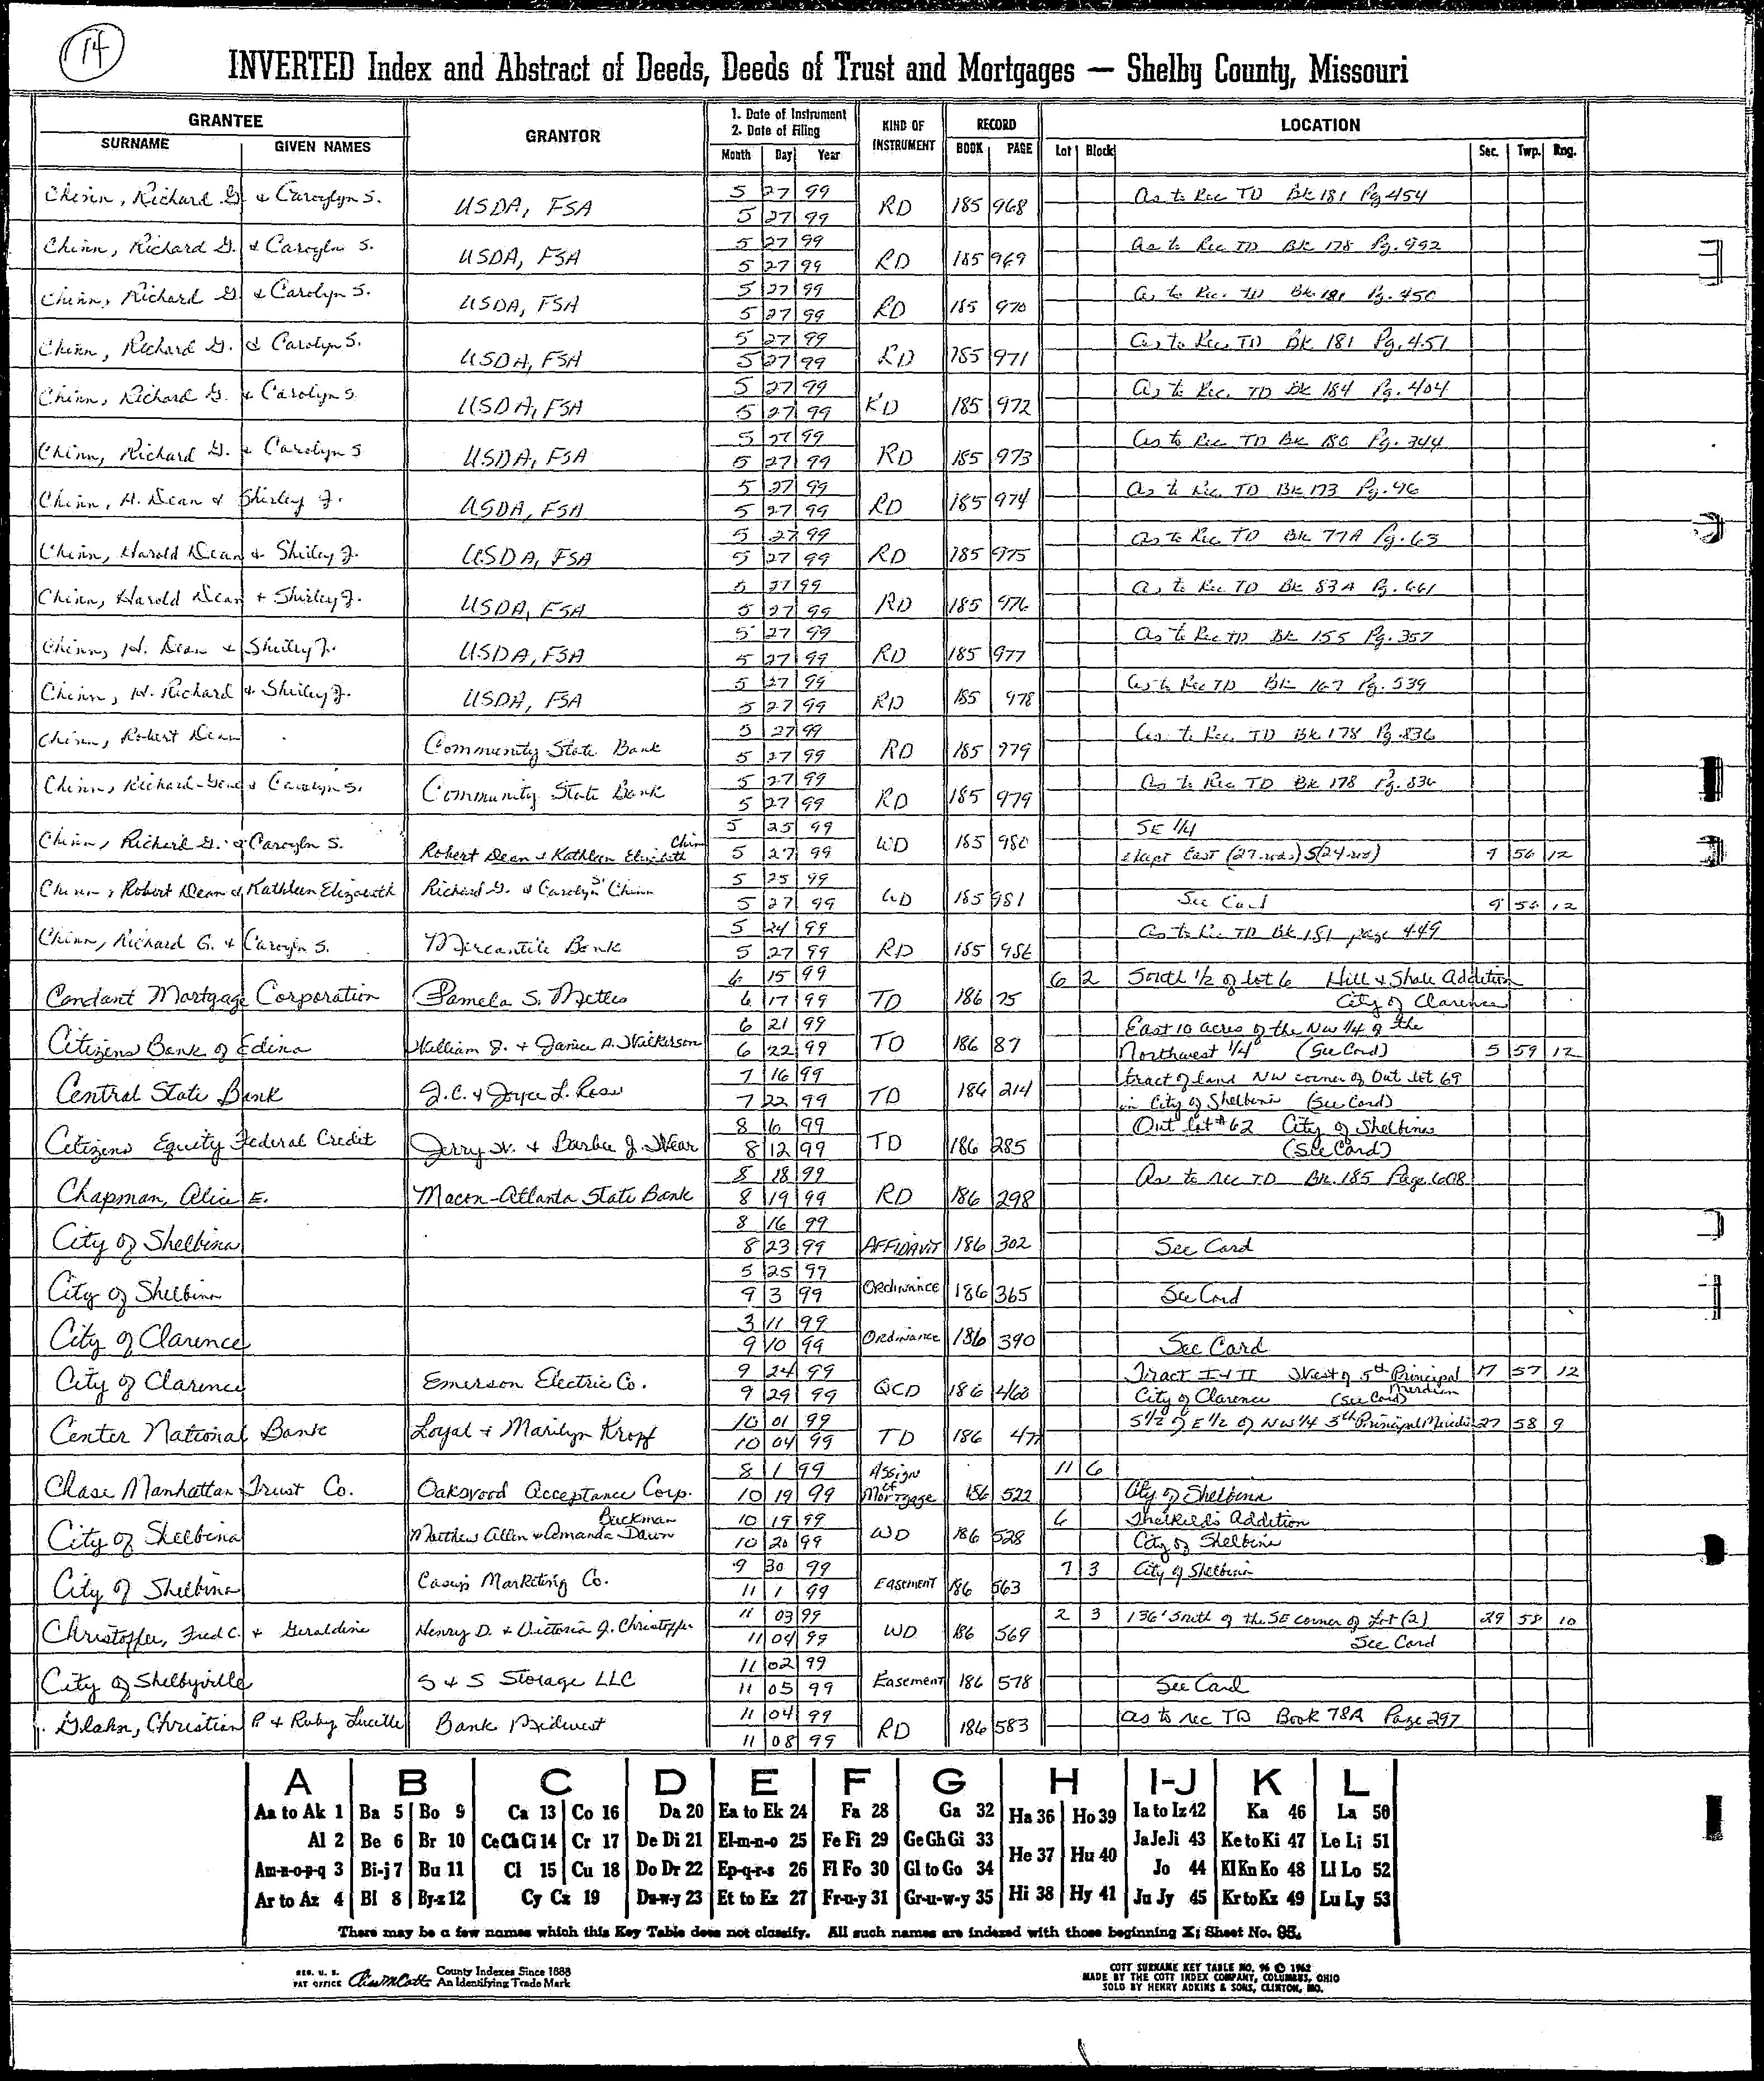 14
INVERTED Index and Abstract of Deeds, Deeds of Trust and Mortgages — Shelby County, Missouri
GRANTEE GRANTOR 1. Date of Instrument 2. Date of Filing KIND OF INSTRUMENT RECORD LOCATION
SURNAME GIVEN NAMES Month Day Year BOOK PAGE Lot Block Sec. Twp. Rng.
Chinn, Richard G. & Caroylyn S. USDA, FSA 5 27 99 5 27 99 RD 185 968 As to Rec TD Bk 181 Pg 454
Chinn, Richard G. & Caroyln S. USDA, FSA 5 27 99 5 27 99 RD 185 969 As to Rec TD Bk 178 Pg. 992
Chinn, Richard G. & Carolyn S. USDA, FSA 5 27 99 5 27 99 RD 185 970 As to Rec. TD Bk. 181 Pg. 450
Chinn, Richard G. & Carolyn S. USDA, FSA 5 27 99 5 27 99 RD 185 971 As to Rec. TD Bk 181 Pg. 451
Chinn, Richard G. & Carolyn S. USDA, FSA 5 27 99 5 27 99 RD 185 972 As to Rec. TD Bk 184 Pg. 404
Chinn, Richard G. & Carolyn S USDA, FSA 5 27 99 5 27 99 RD 185 973 As to Rec TD Bk 180 Pg. 344
Chinn, H. Dean & Shirley J. USDA, FSA 5 27 99 5 27 99 RD 185 974 As to Rec. TD Bk 173 Pg. 96
Chinn, Harold Dean & Shirley J. USDA, FSA 5 27 99 5 27 99 RD 185 975 As to Rec TD Bk 77A Pg. 63
Chinn, Harold Dean + Shirley J. USDA, FSA 5 27 99 5 27 99 RD 185 976 As to Rec TD Bk 83A Pg. 661
Chinn, H. Dean & Shirley J. USDA, FSA 5 27 99 5 27 99 RD 185 977 As to Rec TD Bk 155 Pg. 357
Chinn, H. Richard & Shirley J. USDA, FSA 5 27 99 5 27 99 RD 185 978 As to Rec TD Bk 167 Pg. 539
Chinn, Robert Dean Community State Bank 5 27 99 5 27 99 RD 185 979 As to Rec. TD Bk 178 Pg. 836
Chinn, Richard Gene & Carolyn S. Community State Bank 5 27 99 5 27 99 RD 185 979 As to Rec TD Bk 178 Pg. 836
Chinn, Richard G. & Caroyln S. Robert Dean & Kathleen Elizabeth Chinn 5 25 99 5 27 99 WD 185 980 SE 1/4
East (27 rds) S(24 rds) 9 56 12
Chinn, Robert Dean & Kathleen Elizabeth Richard G. & Carolyn S. Chinn 5 25 99 5 27 99 WD 185 981 See Card 9 56 12
Chinn, Richard G. & Caroyln S. Mercantile Bank 5 24 99 5 27 99 RD 185 986 As to Rec TD Bk 181 page 449
Cendant Mortgage Corporation Pamela S. 6 15 99 6 17 99 TD 186 75 6 2 South 1/2 of lot 6 Hill & Shale Addition
City of Clarence
Citizens Bank of Edina William J. + Janice A. Wilkerson 6 21 99 6 22 99 TD 186 87 East 10 acres of the NW 1/4 of the
Northwest 1/4 (See Card) 5 59 12
Central State Bank J.C. & Joyce L. Ross 7 16 99 7 22 99 TD 186 214 tract of land NW corner of Out lot 69
in City of Shelbina (See Card)
Citizens Equity Federal Credit Jerry W. & Barbee J. Wear 8 6 99 8 12 99 TD 186 285 Out lot #62 City of Shelbina
(See Card)
Chapman, Alice E. Macon-Atlanta State Bank 8 18 99 8 19 99 RD 186 298 As to rec TD Bk. 185 Page 608
City of Shelbina 8 16 99 8 23 99 AFFIDAVIT 186 302 See Card
City of Shelbina 5 25 99 9 3 99 Ordinance 186 365 See Card
City of Clarence 3 11 99 9 10 99 Ordinance 186 390 See Card
City of Clarence Emerson Electric Co. 9 24 99 9 29 99 QCD 186 460 Tract I & II West of 5th Principal Meridian 17 57 12
City of Clarence (See Card)
Center National Bank Loyal & Marilyn Kropf 10 01 99 10 04 99 TD 186 47 S 1/2 of E 1/2 of NW 1/4 5th Principal Meridi 27 58 9
Chase Manhattan Trust Co. Oakwood Acceptance Corp. 8 1 99 10 19 99 Assign of Mortgage 186 522 11 6 City of Shelbina
City of Shelbina Matthew Allen & Amanda Dawn Buckman 10 19 99 10 20 99 WD 186 528 6 Thelkeld's Addition
City of Shelbina
City of Shelbina Casey's Marketing Co. 9 30 99 11 1 99 Easement 186 563 7 3 City of Shelbina
Christoffer, Fred C. & Geraldine Henry D. & Victoria J. Christoffer 11 03 99 11 04 99 WD 186 569 2 3 136' South of the SE corner of Lot (2) 29 58 10
See Card
City of Shelbyville S & S Storage LLC 11 02 99 11 05 99 Easement 186 578 See Card
Glahn, Christian P. & Ruby Lucille Bank Midwest 11 04 99 11 08 99 RD 186 583 As to rec TD Book 78A Page 297
A B C D E F G H I-J K L
Aa to Ak 1 Ba 5 Bo 9 Ca 13 Co 16 Da 20 Ea to Ek 24 Fa 28 Ga 32 Ha 36 Ho 39 Ia to Iz 42 Ka 46 La 50
Al 2 Be 6 Br 10 Ce Ch Ci 14 Cr 17 De Di 21 El-m-n-o 25 Fe Fi 29 Ge Gh Gi 33 He 37 Hu 40 Ja Je Ji 43 Ke to Ki 47 Le Li 51
Am-n-o-p-q 3 Bi-j 7 Bu 11 Cl 15 Cu 18 Do Dr 22 Ep-q-r-s 26 Fl Fo 30 Gl to Go 34 Jo 44 Kl Kn Ko 48 Ll Lo 52
Ar to Az 4 Bl 8 By-z 12 Cy Cz 19 Du-w-y 23 Et to Ez 27 Fr-u-y 31 Gr-u-w-y 35 Hi 38 Hy 41 Ju Jy 45 Kr to Kz 49 Lu Ly 53
There may be a few names which this Key Table does not classify. All such names are indexed with those beginning X; Sheet No. 95.
REG. U. S. PAT OFFICE County Indexes Since 1888 An Identifying Trade Mark
COTT SURNAME KEY TABLE NO. 96 © 1962
MADE BY THE COTT INDEX COMPANY, COLUMBUS, OHIO
SOLD BY HENRY ADKINS & SONS, CLINTON, MO.